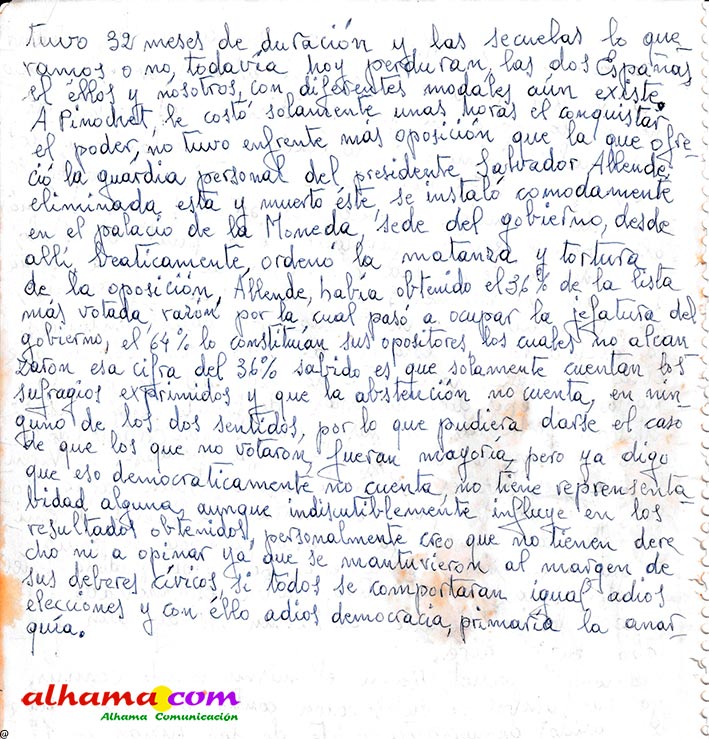 tuvo 32 meses de duración y las secuelas lo que-
ramos o no, todavía hoy perduran, las dos Españas
el éllos y nosotros, con diferentes modales aún existe.
A Pinochet, le costó solamente unas horas el conquistar
el poder, no tuvo enfrente mas oposición que la que ofre-
ció la guardia personal del presidente Salvador Allende,
eliminada esta y muerto éste, se instaló comodamente
en el palacio de la Moneda, sede del gobierno, desde
allí, beaticamente, ordenó la matanza y tortura
de la oposición, Allende, había obtenido el 36% de la lista
más votada, razón por la cual pasó a ocupar la jefatura del
gobierno, el 64% lo constituían sus opositores los cuales no alcan
zaron esa cifra del 36% sabido es que solamente cuentan los
sufragios exprimidos y que la abstención no cuenta, en nin-
guno de los dos sentidos, por lo que pudiera darse el caso
de que los que no votaron, fueran mayoría, pero ya digo
que eso democraticamente no cuenta, no tiene reprensenta-
bidad alguna, aunque indiscutiblemente influye en los
resultados obtenidos, personalmente creo que no tienen dere
cho ni a opinar ya que se mantuvieron al margen de
sus deberes cívicos, si todos se comportaran igual adios
elecciones y con éllo adios democracia, primaría la anar-
quía.
alhama.com
Alhama Comunicación
@